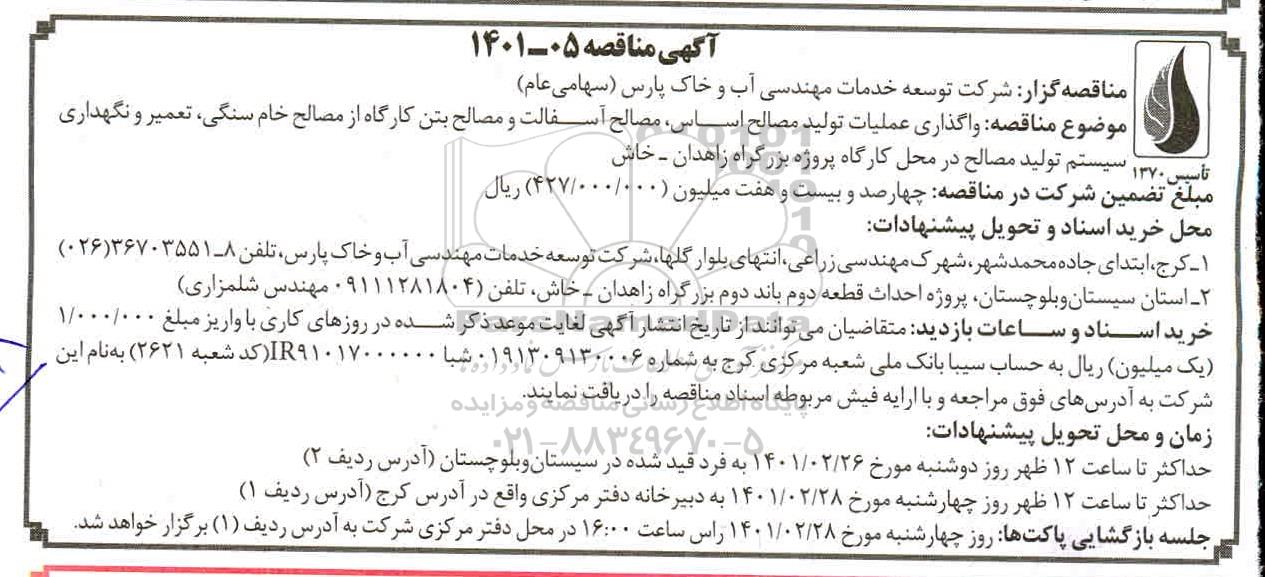 آگهی مناقصه ۰۵-۱۴۰۱
مناقصه‌گزار: شرکت توسعه خدمات مهندسی آب و خاک پارس (سهامی‌عام)
موضوع مناقصه: واگذاری عملیات تولید مصالح اساس، مصالح آسفالت و مصالح بتن کارگاه از مصالح خام سنگی، تعمیر و نگهداری
سیستم تولید مصالح در محل کارگاه پروژه بزرگراه زاهدان - خاش
تأسیس ۱۳۷۰
مبلغ تضمین شرکت در مناقصه: چهارصد و بیست و هفت میلیون (۴۲۷/۰۰۰/۰۰۰) ریال
محل خرید اسناد و تحویل پیشنهادات:
۱-کرج، ابتدای جاده محمدشهر، شهرک مهندسی زراعی، انتهای بلوار گلها، شرکت توسعه خدمات مهندسی آب و خاک پارس، تلفن ۸-۳۶۷۰۳۵۵۱(۰۲۶)
۲-استان سیستان‌وبلوچستان، پروژه احداث قطعه دوم باند دوم بزرگراه زاهدان - خاش، تلفن (۰۹۱۱۱۲۸۱۸۰۴ مهندس شلمزاری)
خرید اسناد و ساعات بازدید: متقاضیان می‌توانند از تاریخ انتشار آگهی لغایت موعد ذکر شده در روزهای کاری با واریز مبلغ ۱/۰۰۰/۰۰۰
(یک میلیون) ریال به حساب سیبا بانک ملی شعبه مرکزی کرج به شماره ۰۱۹۱۳۰۹۱۳۰۰۰۶ شبا IR۹۱۰۱۷۰۰۰۰۰۰(کد شعبه ۲۶۲۱) به‌نام این
شرکت به آدرس‌های فوق مراجعه و با ارایه فیش مربوطه اسناد مناقصه را دریافت نمایند.
زمان و محل تحویل پیشنهادات:
حداکثر تا ساعت ۱۲ ظهر روز دوشنبه مورخ ۱۴۰۱/۰۲/۲۶ به فرد قید شده در سیستان‌وبلوچستان (آدرس ردیف ۲)
حداکثر تا ساعت ۱۲ ظهر روز چهارشنبه مورخ ۱۴۰۱/۰۲/۲۸ به دبیرخانه دفتر مرکزی واقع در آدرس کرج (آدرس ردیف ۱)
جلسه بازگشایی پاکت‌ها: روز چهارشنبه مورخ ۱۴۰۱/۰۲/۲۸ راس ساعت ۱۶:۰۰ در محل دفتر مرکزی شرکت به آدرس ردیف (۱) برگزار خواهد شد.
ParsNamadData
پایگاه اطلاع رسانی مناقصه و مزایده
۰۲۱-۸۸۳۴۹۶۷۰-۵